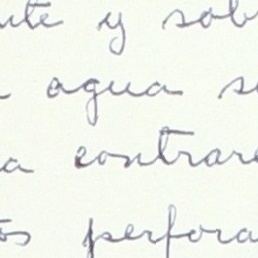 nte y sob
agua s
a contrar
os perfora